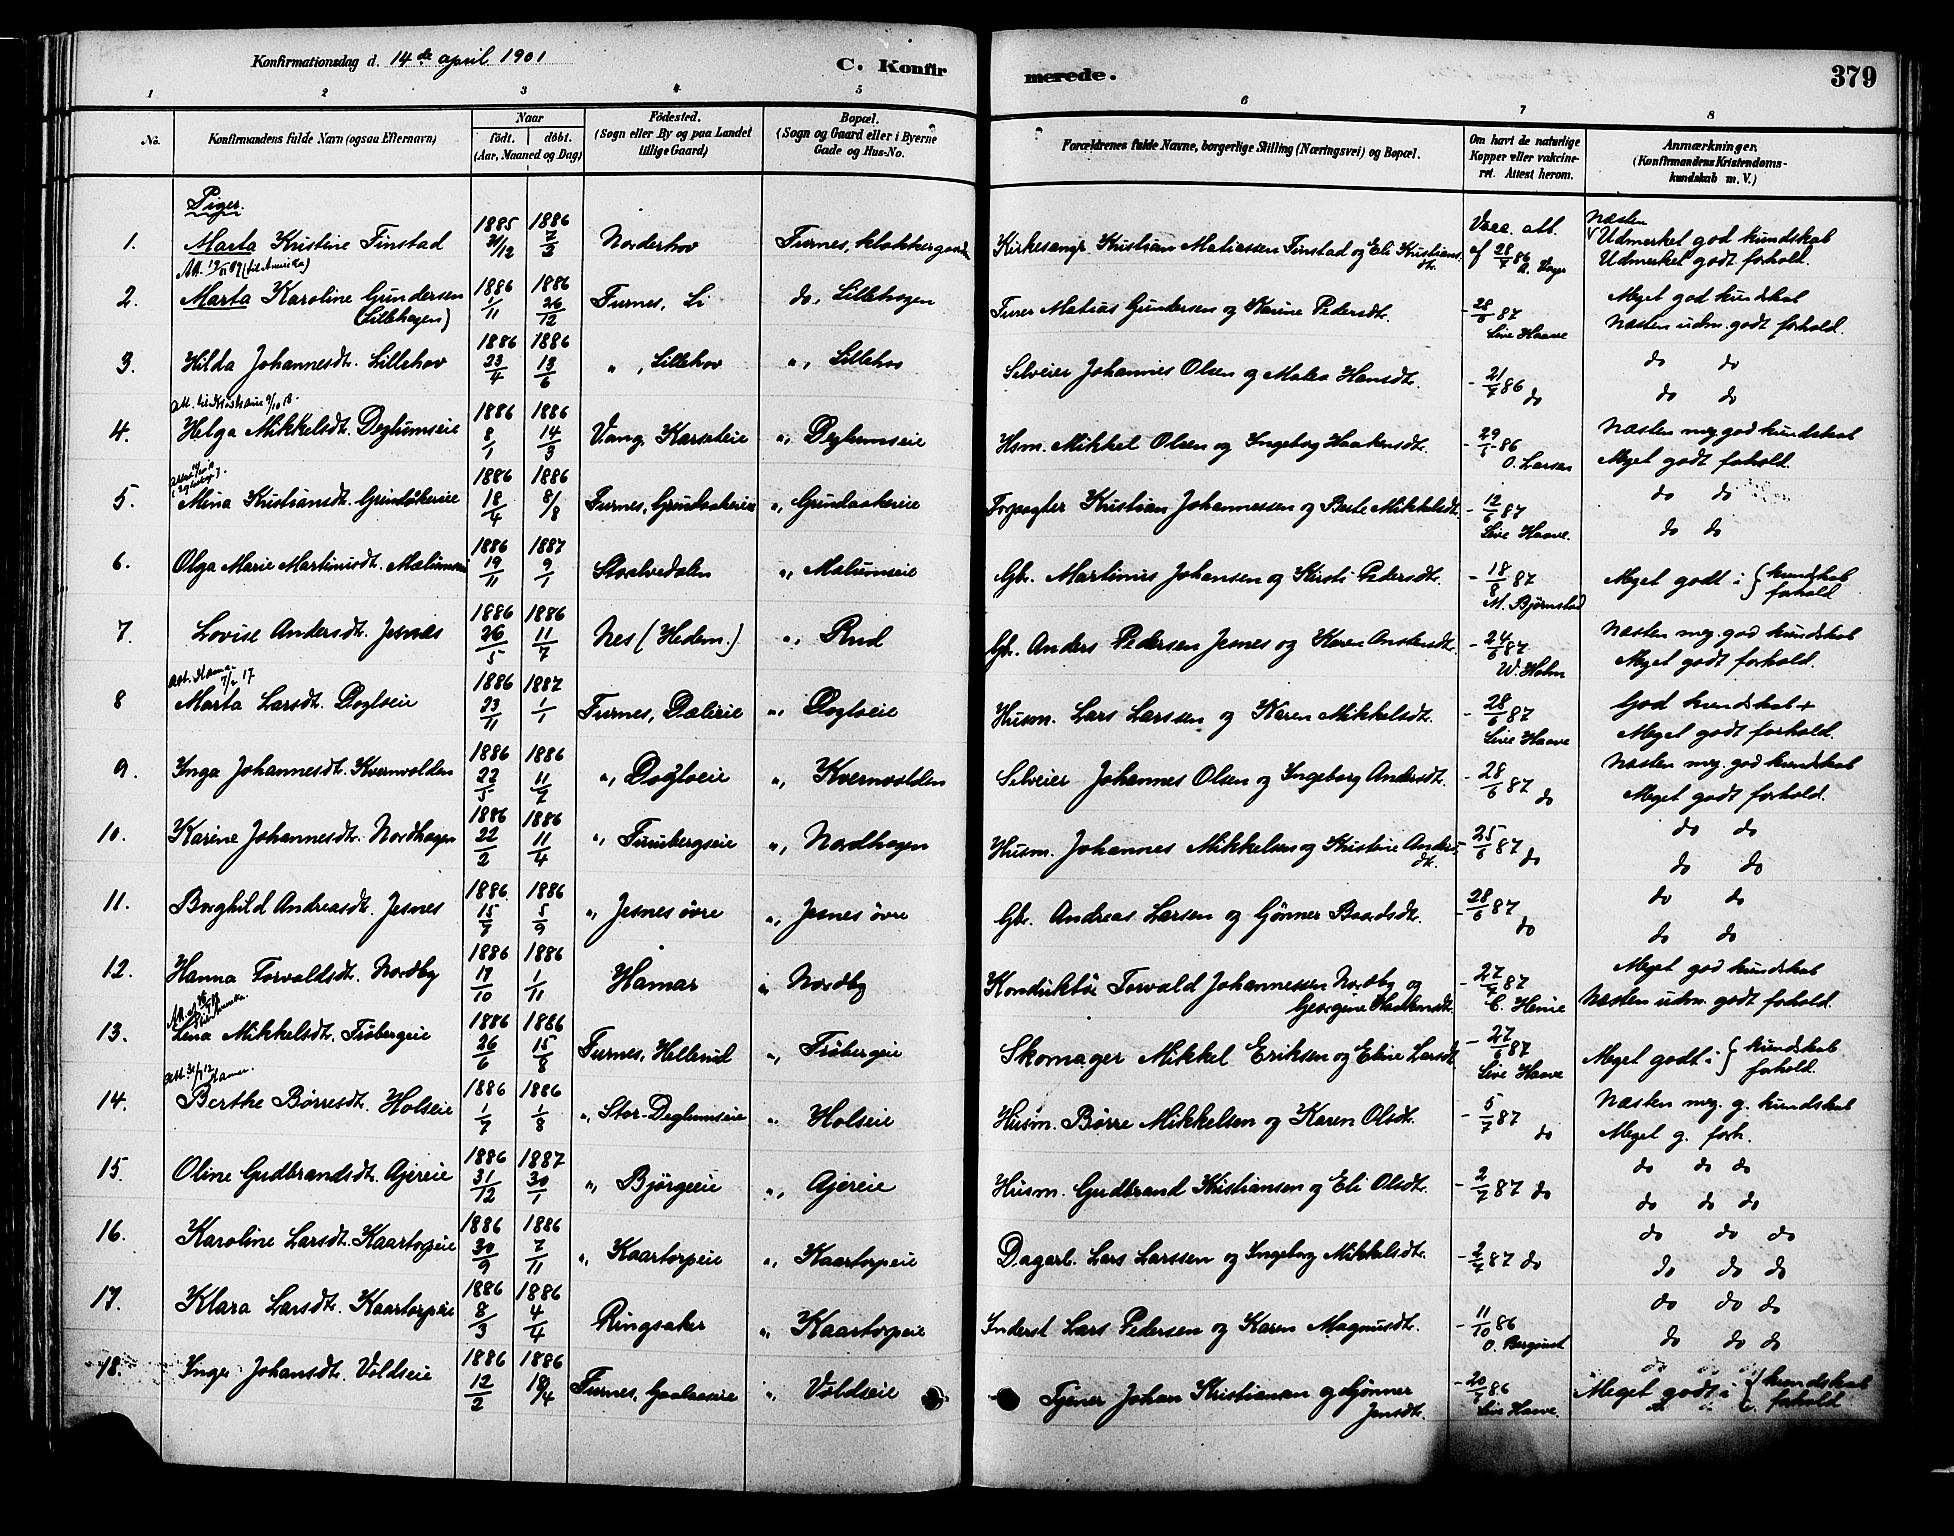 Konfirmationsdag d. 14de april 1901
C. Konfirmerede.
379
1 2 3 4 5 6 7 8
No. | Konfirmandens fulde Navn (ogsaa Efternavn) | Naar født. døbt. (Aar, Maaned og Dag) | Fødested. (Sogn eller By og paa Landet tillige Gaard) | Bopæl. (Sogn og Gaard eller i Byerne Gade og Hus-No. | Forældrenes fulde Navne, borgerlige Stilling (Næringsvei) og Bopæl. | Om havt de naturlige Kopper eller vakcineret. Attest herom. | Anmærkninger. (Konfirmandens Kristendomskundskab m. V.)
Piger.
1. Marta Kristine Finstad | 1885 31/12 | 1886 7/3 | Norderhov | Furnes, klokkergaard | Kirkesangr Kristian Matiassen Finstad og Eli Kristiansdt. | Vacc. att. af 28/7 86 | Næsten Udmerket god kundskab
Udmerket godt forhold.
(til Amerika)
2. Marta Karoline Gundersen (Lillehagen) | 1886 1/11 | 1886 26/12 | Furnes, Li | do, Lillehagen | Furer Matias Gundersen og Karine Pedersdt. | - 28/6 87 Sive Haave | Meget god kundskab
Næsten udm. godt forhold.
3. Hilda Johannesdt. Lillehov | 1886 23/4 | 1886 13/6 | " , Lillehov | ", Lillehov | Selveier Johannes Olsen og Matea Hansdt. | - 21/7 86 do | do do
do do
4. Helga Mikkelsdt. Deglumseie | 1886 8/1 | 1886 14/3 | Vang, Karseteie | ", Deglumseie | Hsm. Mikkel Olsen og Ingeborg Haakensdt. | 86 O. Larsen | Næsten meg. god kundskab
Meget godt forhold.
5. Mina Kristiansdt. Grindåkereie | 1886 18/4 | 1886 8/8 | Furnes, Grindaakereie | ", Grindaakereie | Forpagter Kristian Johannessen og Berte Mikkelsdt. | - 12/6 87 Sive Haave. | do do
do do
6. Olga Marie Martinusdt. Mælumseie | 1886 19/11 | 1887 9/1 | Storelvedalen | ", Mælumseie | Gbr. Martinus Johansen og Kirsti Pedersdt. | - 18/8 87 M. Bjørnstad | Meget godt i { kundskab
forhold
7. Lovise Andersdt. Jesnæs | 1886 26/5 | 1886 11/7 | Nes (Hedem.) | ", Rud | Gbr. Anders Pedersen Jesnes og Karen Anstensdt. | - 24/6 87 W. Holm | Næsten meg. god kundskab
Meget godt forhold.
8 Marta Larsdt. Dogloeie | 1886 23/11 | 1887 1/1 | Furnes, Dælieie | ", Dogloeie | Husm. Lars Larssen og Karen Mikkelsdt. | - 28/6 87 Sive Haave | God kundskab +
Meget godt forhold.
9. Inga Johannesdt. Kvernvolden | 1886 22/5 | 1886 11/7 | ", Dogloeie | ", Kvernvolden | Selveier Johannes Olsen og Ingeborg Andersdt. | - 28/6 87 do | Næsten meg. god kundskab
Meget godt forhold.
10. Karine Johannesdt. Nordhagen | 1886 22/2 | 1886 11/4 | ", Furubergseie | ", Nordhagen | Husm. Johannes Mikkelsen og Kristine Andersdt. | - 25/6 87 do | do do
do do
11. Borghild Andreasdt. Jesnes | 1886 15/7 | 1886 5/9 | ", Jesnes øvre | ", Jesnes øvre | Gbr. Andreas Larsen og Gønner Baardsdt. | - 28/6 87 do | do do
do do
12. Hanna Torvaldsdt. Nordby | 1886 17/10 | 1886 1/11 | Hamar | " Nordby | Konduktør Torvald Johannessen Nordby og Georgine Haakensdt. | - 27/7 87 C. Henie | Meget god kundskab
Næsten udm. godt forhold.
13. Lina Mikkelsdt. Frøbergeie | 1886 26/6 | 1886 15/8 | Furnes, Hellerud | ", Frøbergeie | Skomager Mikkel Eriksen og Eline Larsdt. | - 27/6 87 Sive Haave | Meget godt i { kundskab
forhold.
14. Berthe Børresdt. Holseie | 1886 1/7 | 1886 1/8 | ", Stor-Deglumseie | ", Holseie | Husm. Børre Mikkelsen og Karen Olsdt. | - 5/7 87 do | Næsten meg. g. kundskab
Meget g. forh.
15. Oline Gudbrandsdt. Ajereie | 1886 31/12 | 1887 30/1 | ", Bjørgeeie | ", Ajereie | Husm. Gudbrand Kristiansen og Eli Olsdt. | - 2/7 87 do | do do do
do do do
16. Karoline Larsdt. Kaartorpeie | 1886 30/9 | 1886 7/11 | ", Kaartorpeie | ", Kaartorpeie | Dagarb. Lars Larssen og Ingeborg Mikkelsdt. | - 2/7 87 do | do do do
do do do
17. Klara Larsdt. Kaartorpeie | 1886 8/3 | 1886 4/4 | Ringsaker | ", Kaartorpeie | Inderst Lars Pedersen og Karen Magnusdt. | - 11/10 86 | do do do
do do do
18. Inger Johansdt. Voldseie | 1886 12/2 | 1886 18/4 | Furnes, Gaalaaseie | ", Voldseie | Tjener Johan Kristiansen og Gønner Jensdt. | - 20/7 86 Sive Haave. | Meget godt i { kundskab
forhold